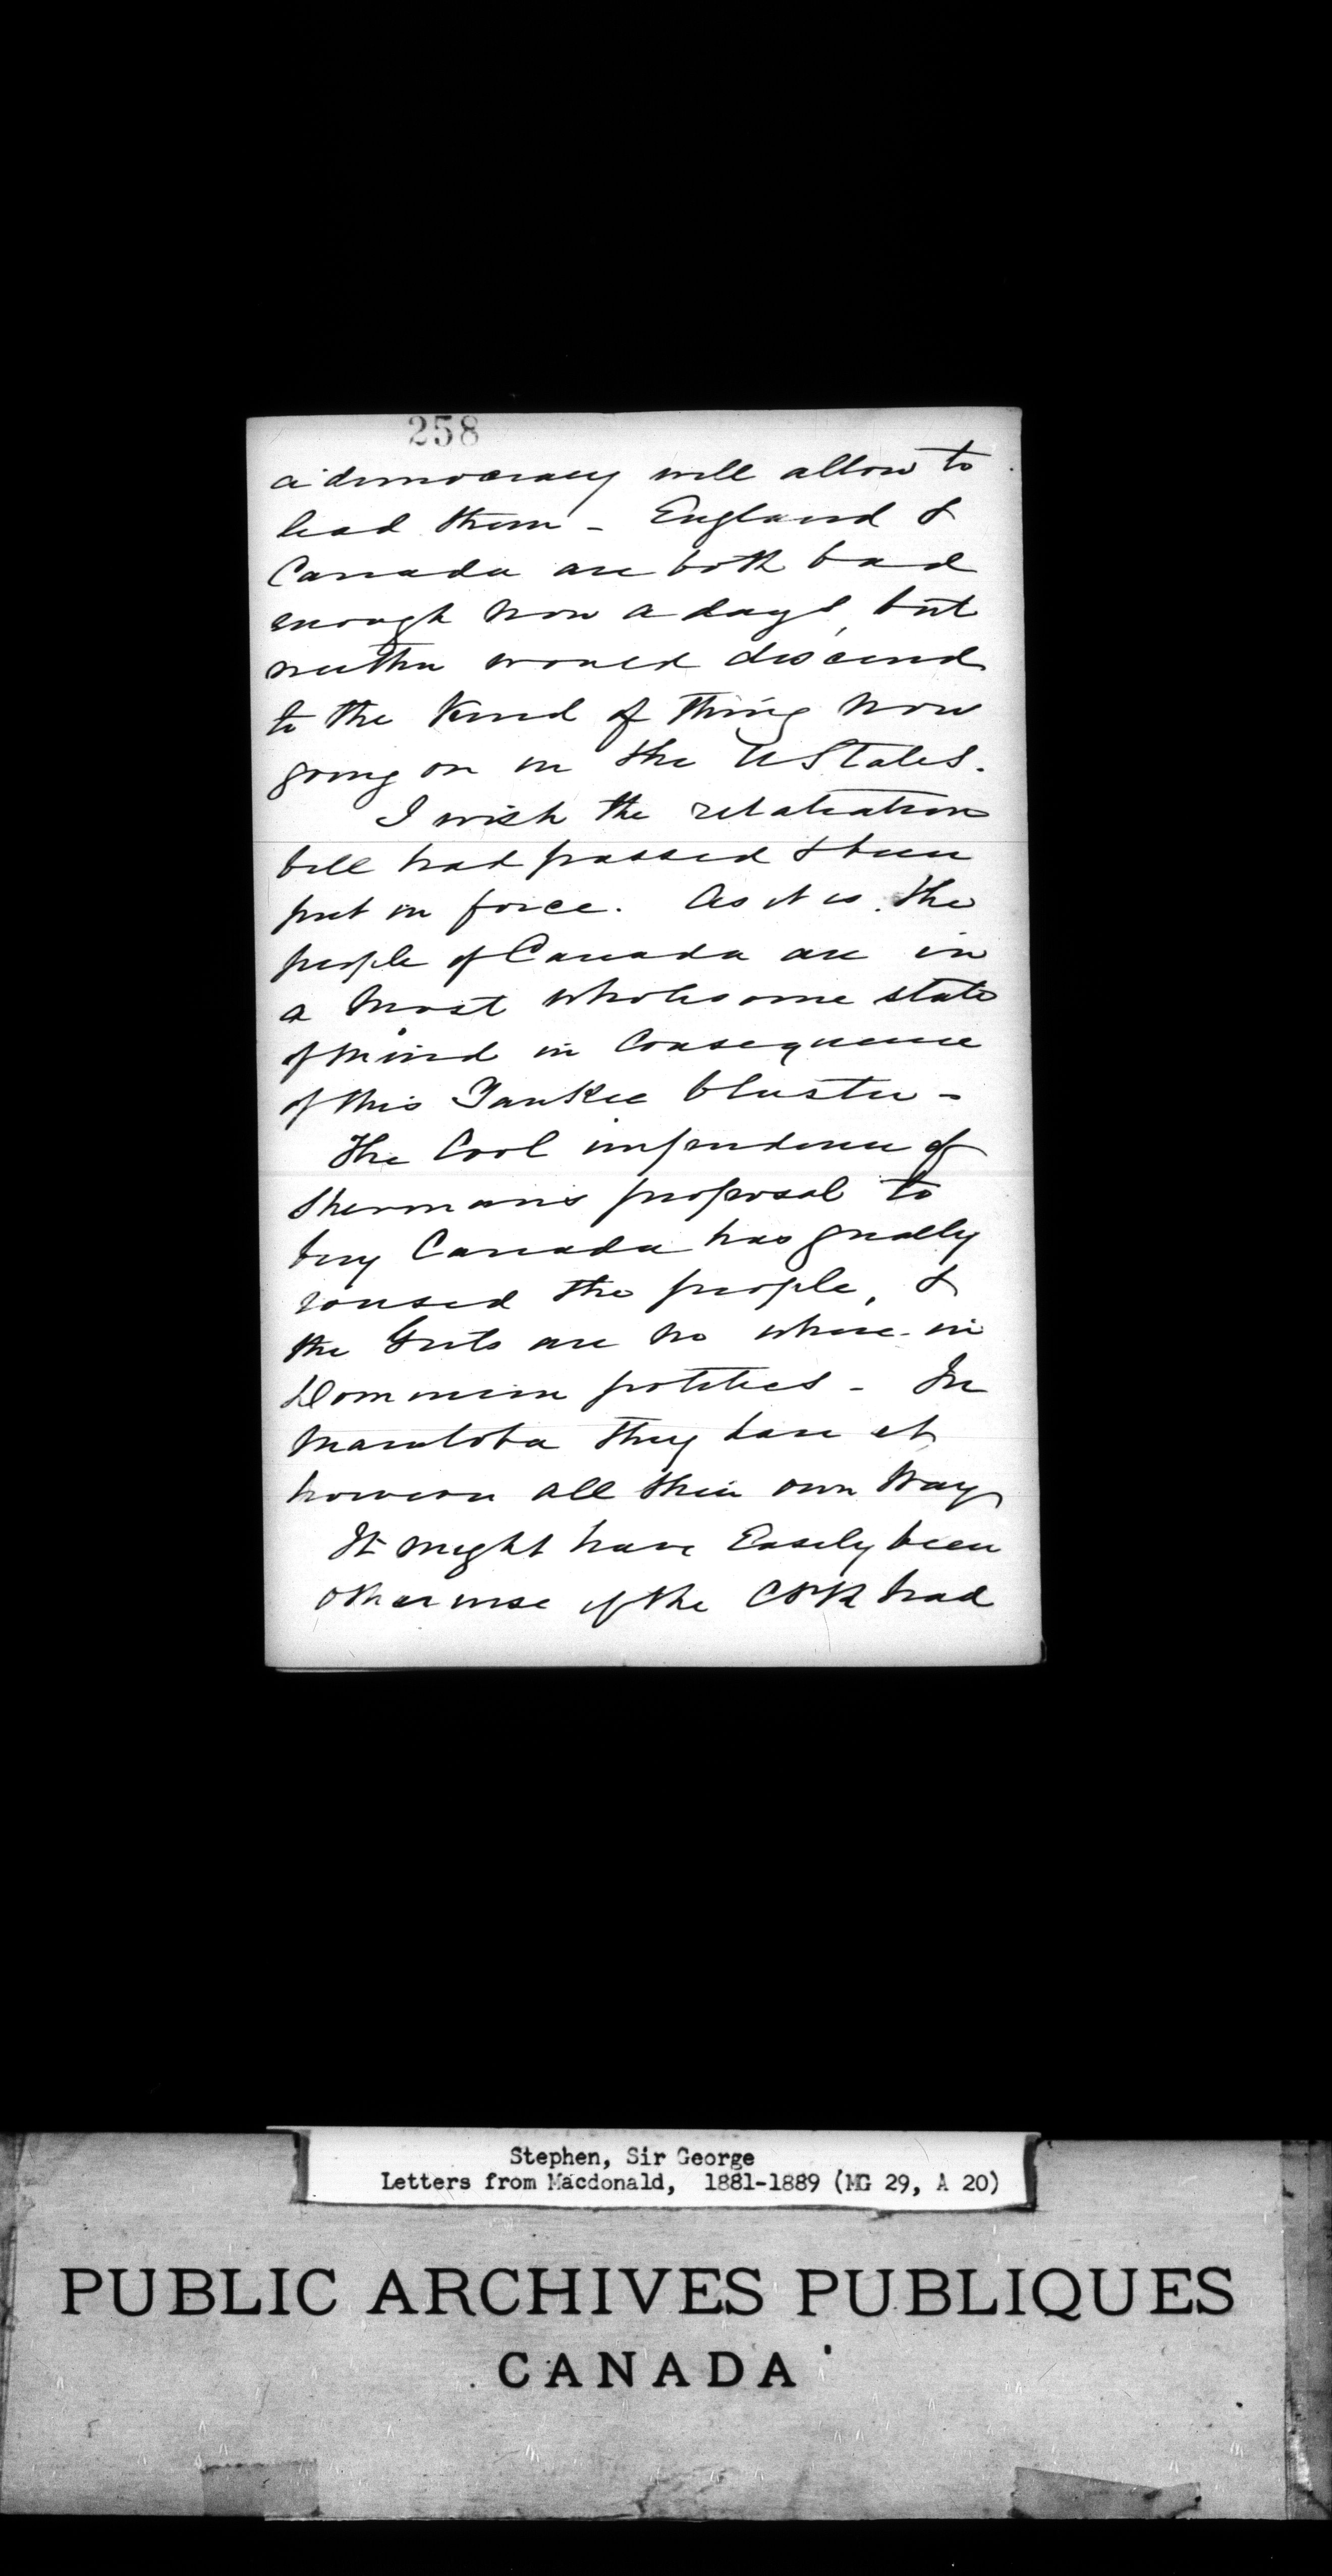 258
a democracy will allow to
lead them - England &
Canada are both bad
enough now a days, but
neither would descend
to the kind of thing now
going on in the U States.
I wish the retaliation
bill had passed & been
put in force. As it is, the
people of Canada are in
a most wholesome state
of mind in consequence
of this Yankee bluster -
The cool impudence of
Sherman's proposal to
buy Canada has greatly
roused the people, &
the Grits are no where in
Dominion politics - In
Manitoba they have it
however all their own way
It might have easily been
otherwise if the CPR had
Stephen, Sir George
Letters from Macdonald, 1881-1889 (MG 29, A 20)
PUBLIC ARCHIVES PUBLIQUES
CANADA